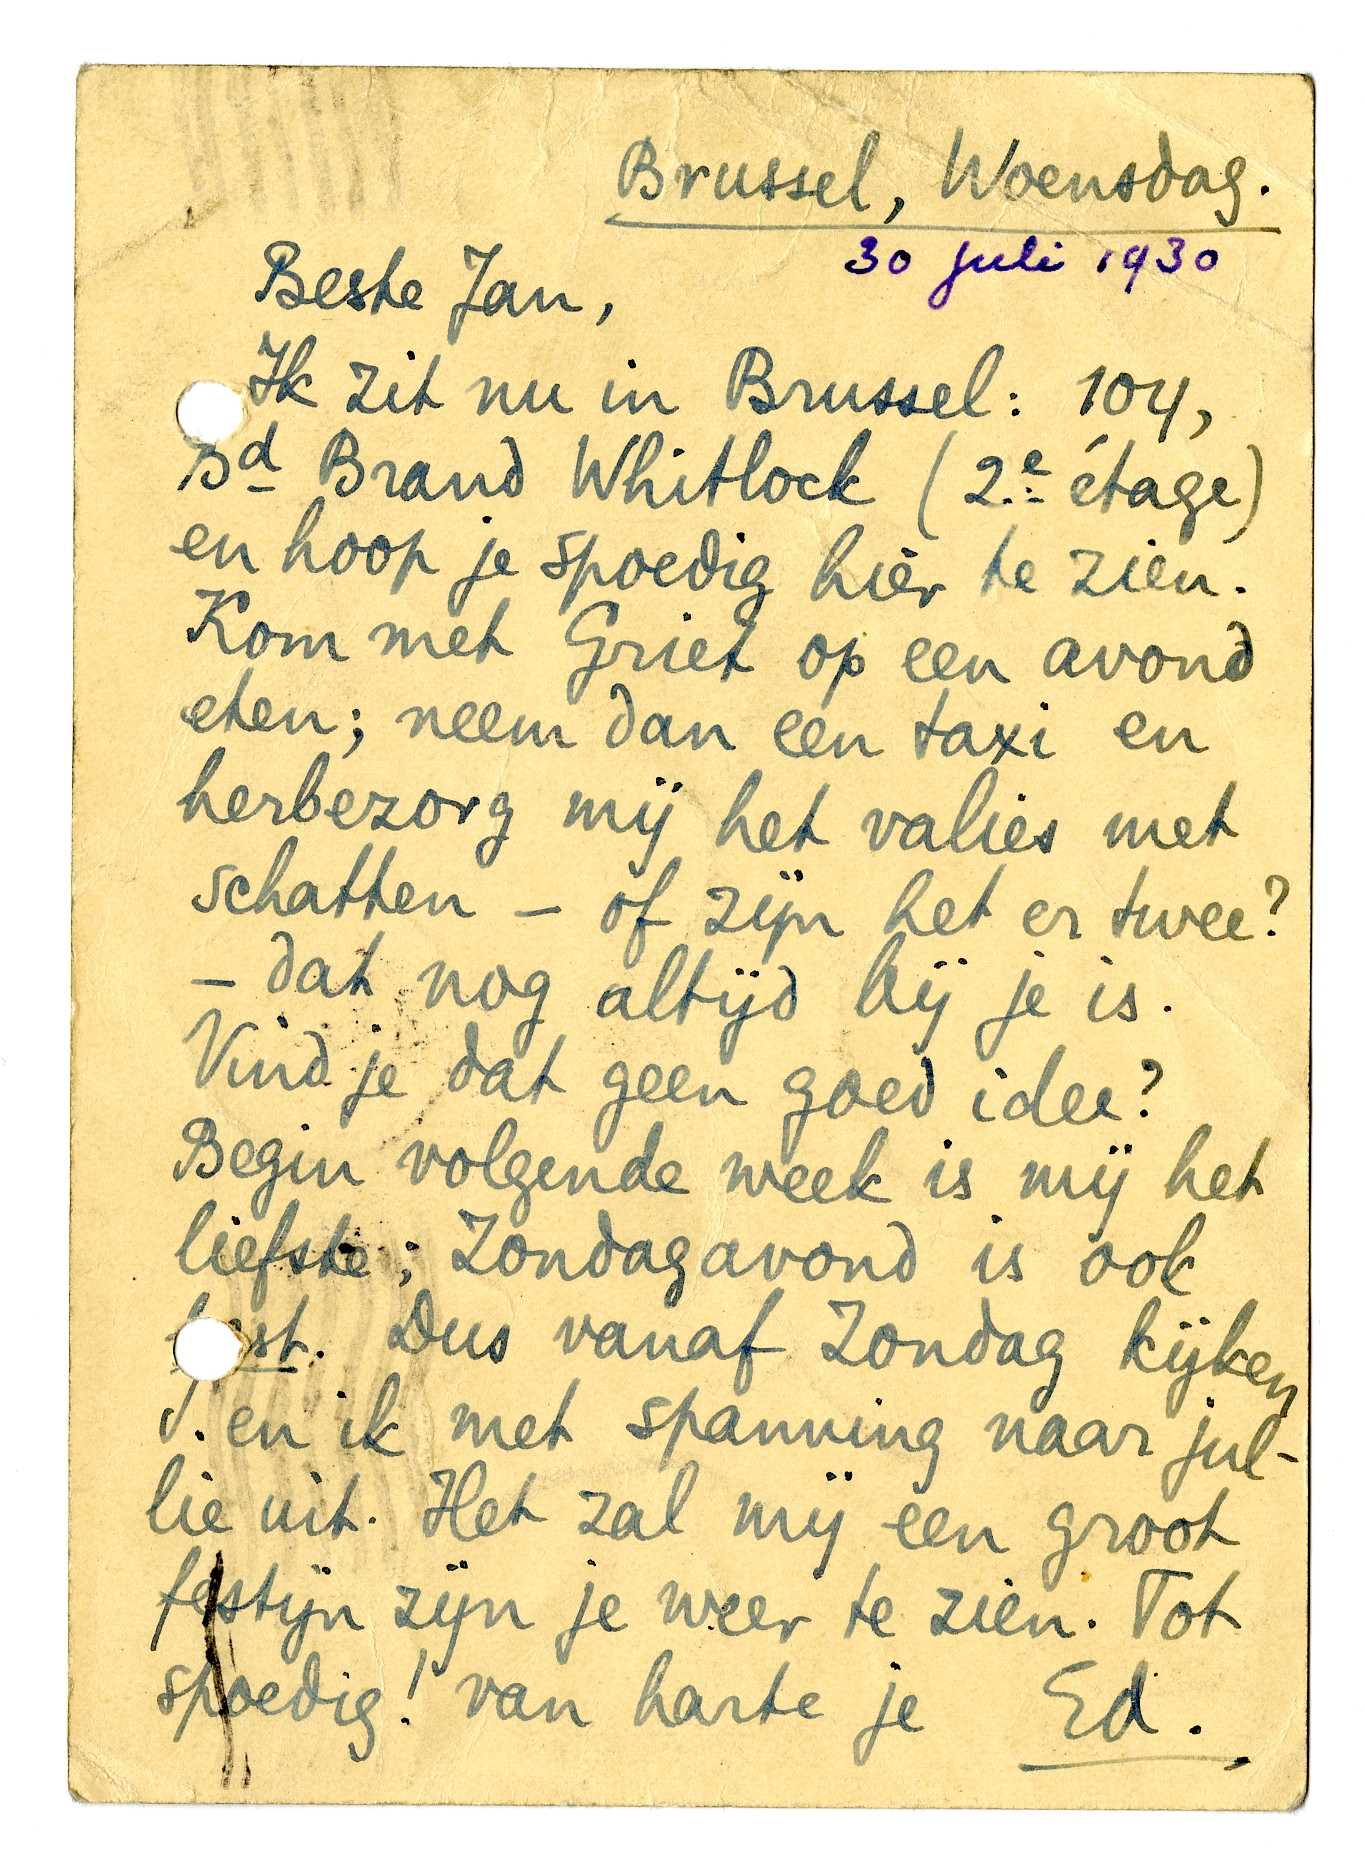 Brussel, Woensdag.
30 juli 1930
Beste Jan,
Ik zit nu in Brussel: 104,
Bd Brand Whitlock (2e étage)
en hoop je spoedig hier te zien.
Kom met Griet op een avond
eten; neem dan een taxi en
herbezorg mij het valies met
schatten – of zijn het er twee?
– dat nog altijd bij je is.
Vind je dat geen goed idee?
Begin volgende week is mij het
liefste; Zondagavond is ook
best. Dus vanaf Zondag kijken
en ik met spanning naar jul-
lie uit. Het zal mij een groot
festijn zijn je weer te zien. Tot
spoedig! van harte je Ed.